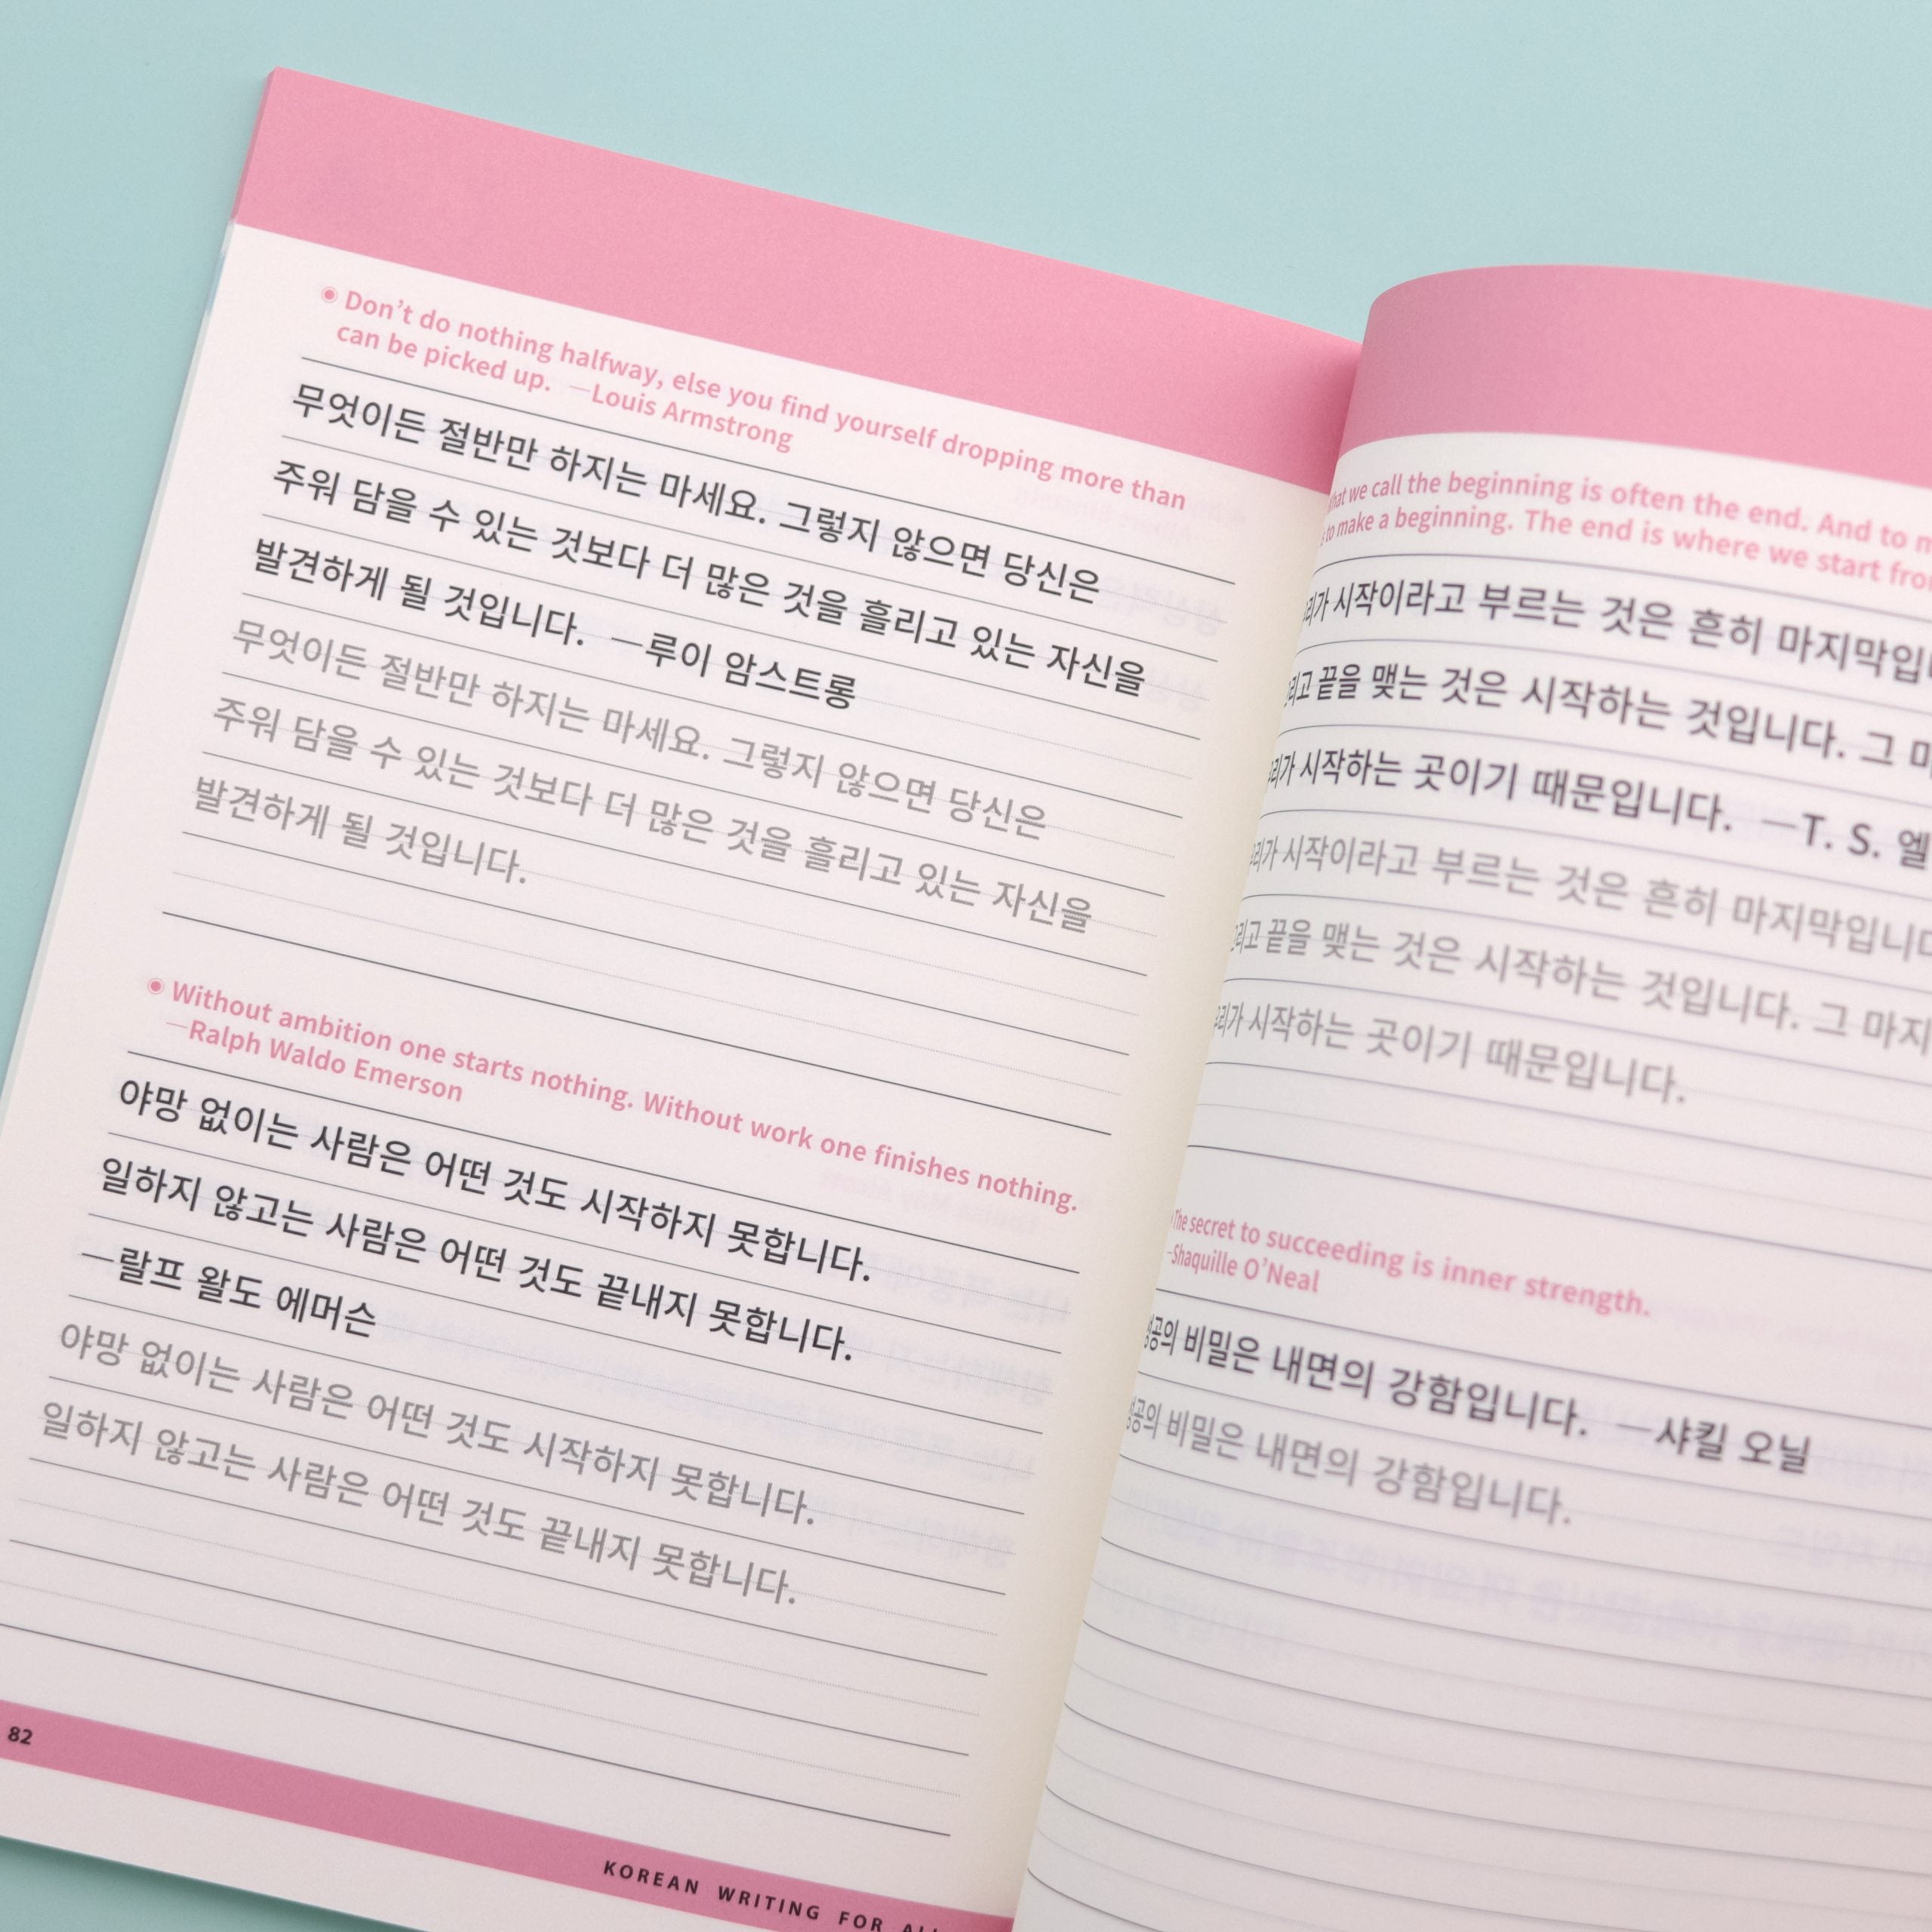 Don't do nothing halfway, else you find yourself dropping more than
can be picked up. —Louis Armstrong
무엇이든 절반만 하지는 마세요. 그렇지 않으면 당신은
주워 담을 수 있는 것보다 더 많은 것을 흘리고 있는 자신을
발견하게 될 것입니다. —루이 암스트롱
무엇이든 절반만 하지는 마세요. 그렇지 않으면 당신은
주워 담을 수 있는 것보다 더 많은 것을 흘리고 있는 자신을
발견하게 될 것입니다.
Without ambition one starts nothing. Without work one finishes nothing.
—Ralph Waldo Emerson
야망 없이는 사람은 어떤 것도 시작하지 못합니다.
일하지 않고는 사람은 어떤 것도 끝내지 못합니다.
—랄프 왈도 에머슨
야망 없이는 사람은 어떤 것도 시작하지 못합니다.
일하지 않고는 사람은 어떤 것도 끝내지 못합니다.
82
KOREAN WRITING FOR
we call the beginning is often the end. And to
to make a beginning. The end is where we start
시작이라고 부르는 것은 흔히
끝을 맺는 것은 시작하는 것입니다. 그
시작하는 곳이기 때문입니다. —T. S.
시작이라고 부르는 것은 흔히
끝을 맺는 것은 시작하는 것입니다. 그
시작하는 곳이기 때문입니다.
The secret to succeeding is inner strength.
—Shaquille O'Neal
비밀은 내면의 강함입니다. —샤킬 오닐
비밀은 내면의 강함입니다.